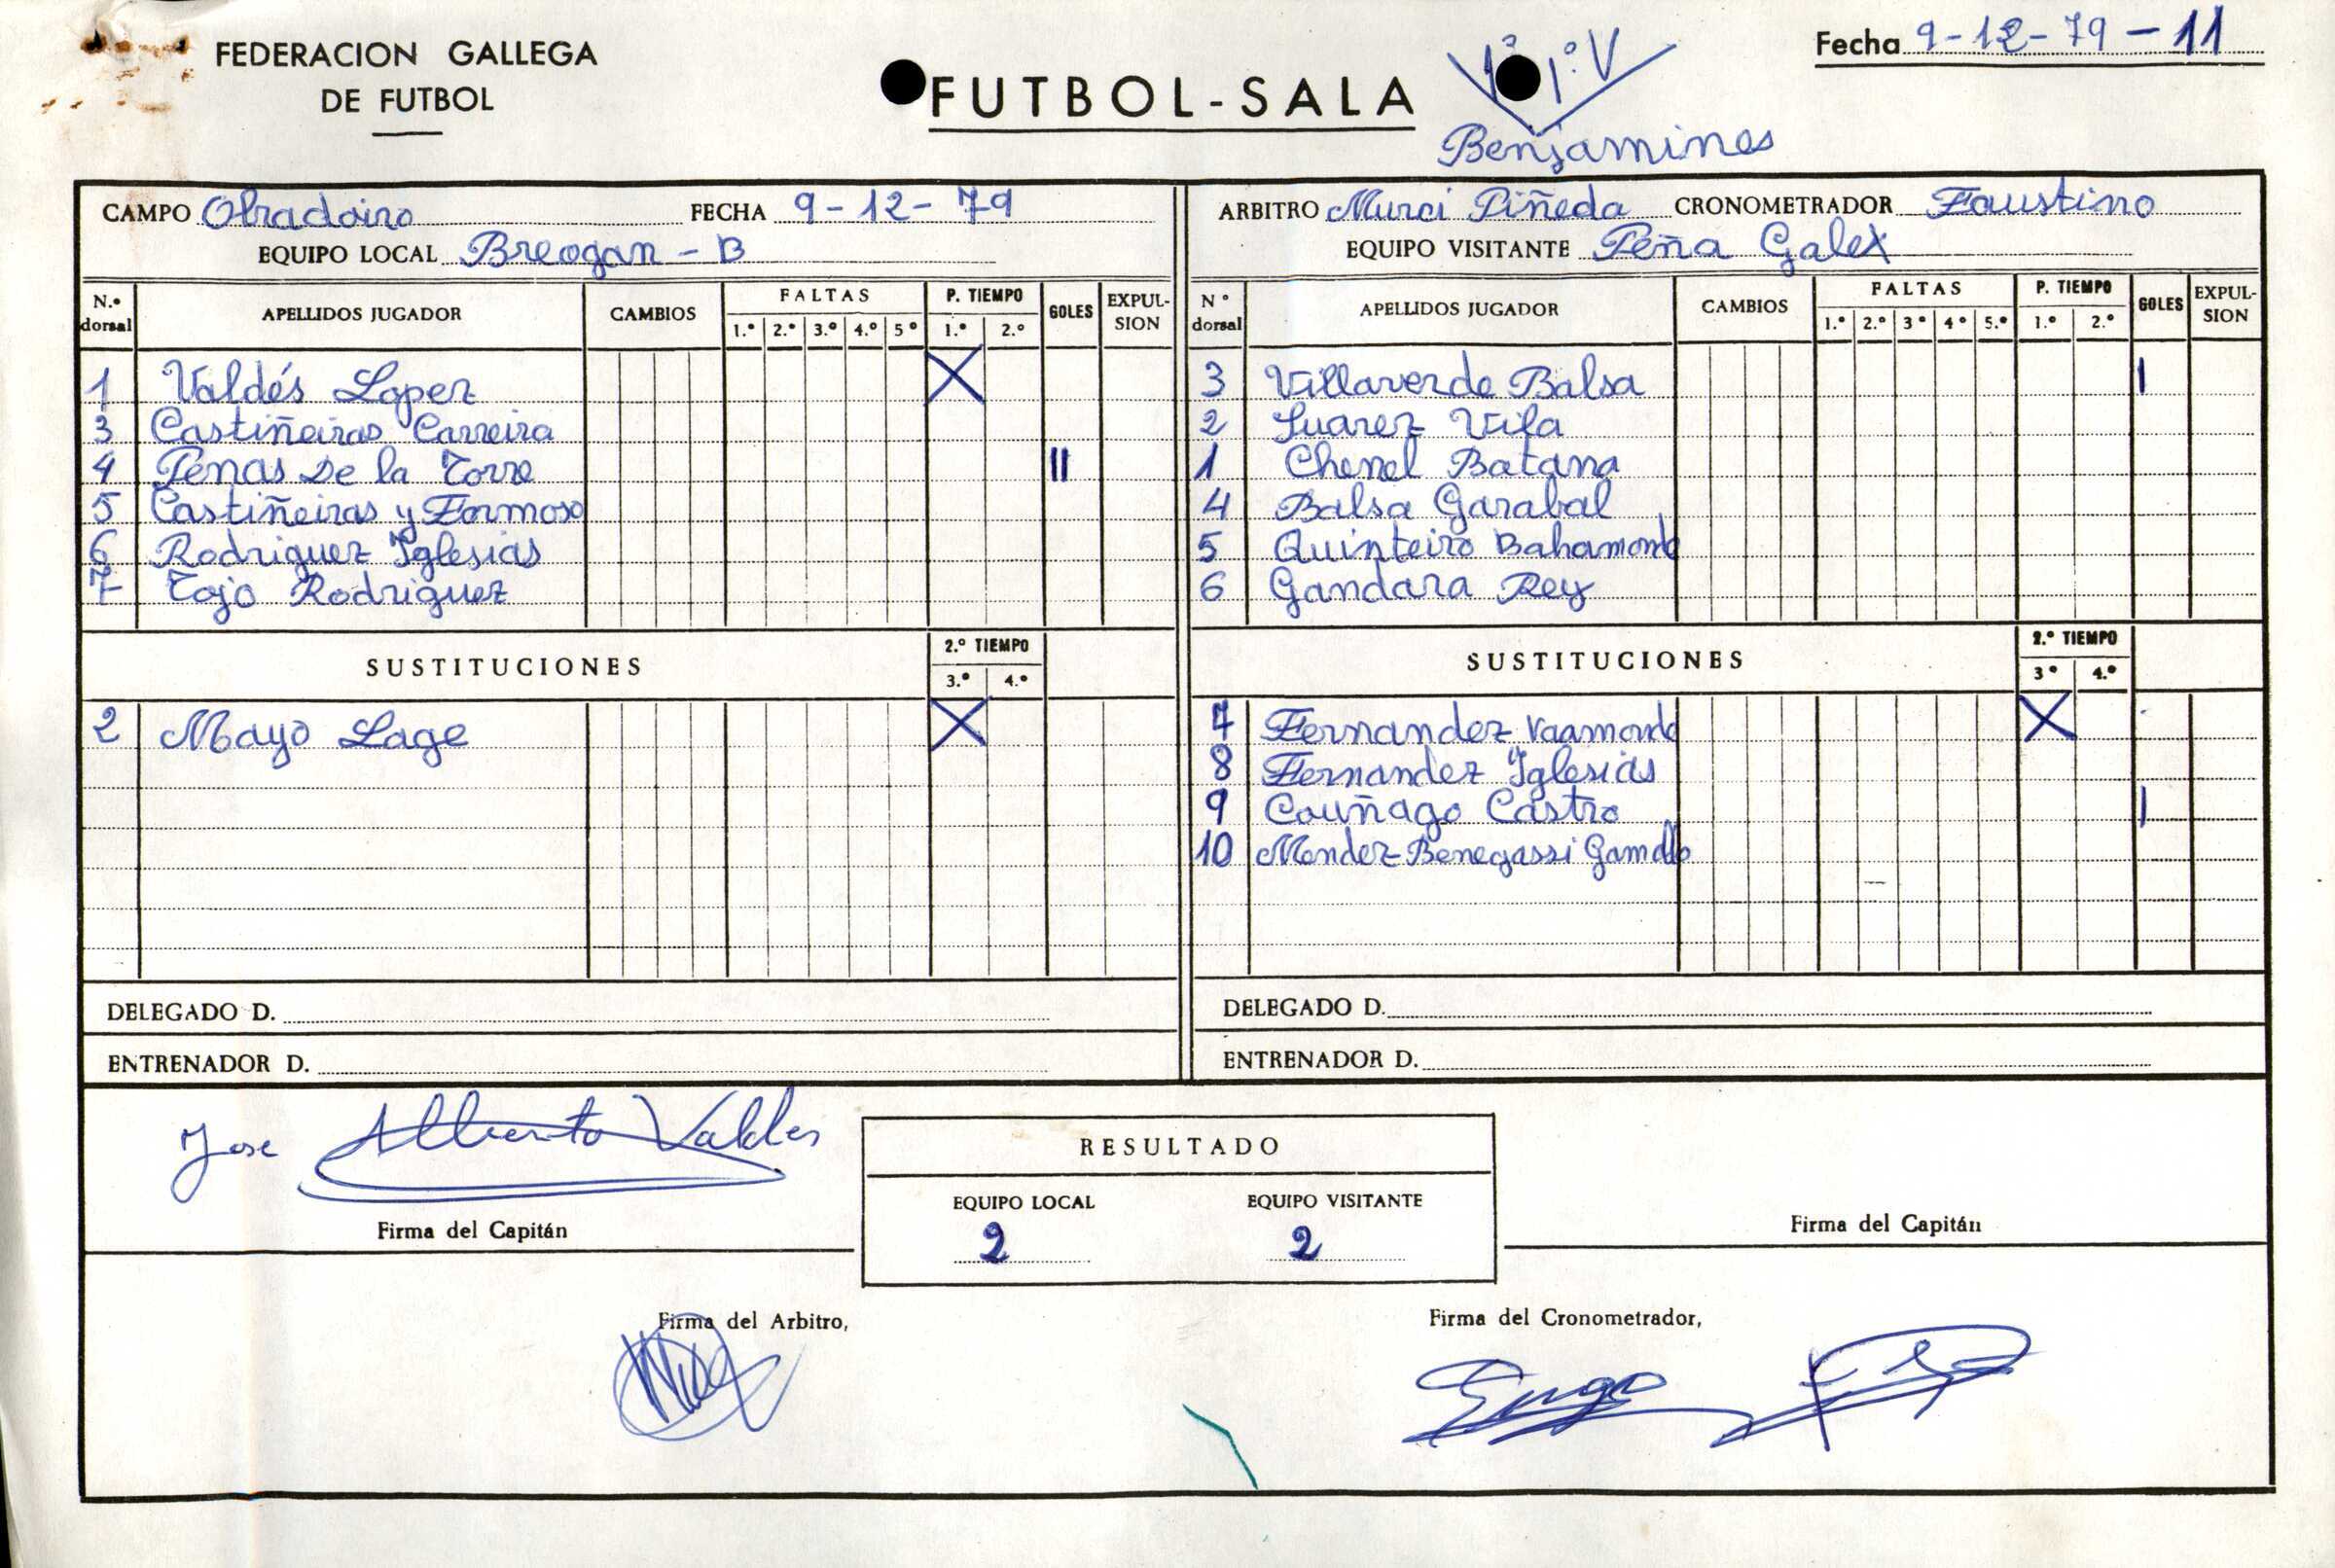 FEDERACION GALLEGA
DE FUTBOL
FUTBOL-SALA
1º 1º V
Benjamines
Fecha 9-12-79-11
CAMPO Obradoiro FECHA 9-12-79
EQUIPO LOCAL Breogan-B
N.º dorsal APELLIDOS JUGADOR CAMBIOS FALTAS 1.º 2.º 3.º 4.º 5º P. TIEMPO 1.º 2.º GOLES EXPULSION
1 Valdés Lopez X
3 Castiñeiras Carreira
4 Penas De la Torre II
5 Castiñeiras y Formoso
6 Rodriguez Iglesias
7 Tojo Rodriguez
SUSTITUCIONES 2.º TIEMPO 3.º 4.º
2 Mayo Lage X
DELEGADO D.
ENTRENADOR D.
ARBITRO Murci Piñeda CRONOMETRADOR Faustino
EQUIPO VISITANTE Peña Galex
Nº dorsal APELLIDOS JUGADOR CAMBIOS FALTAS 1.º 2.º 3º 4º 5.º P. TIEMPO 1.º 2.º GOLES EXPULSION
3 Villaverde Balsa I
2 Suarez Vila
1 Chenel Batana
4 Balsa Garabal
5 Quinteiro Bahamonde
6 Gandara Rey
SUSTITUCIONES 2.º TIEMPO 3º 4.º
7 Fernandez Vaamonde X
8 Fernandez Iglesias
9 Couñago Castro I
10 Mendez-Benegassi Gamallo
DELEGADO D.
ENTRENADOR D.
Jose Alberto Valdes
Firma del Capitán
RESULTADO
EQUIPO LOCAL EQUIPO VISITANTE
2 2
Firma del Capitán
Firma del Arbitro,
Firma del Cronometrador,